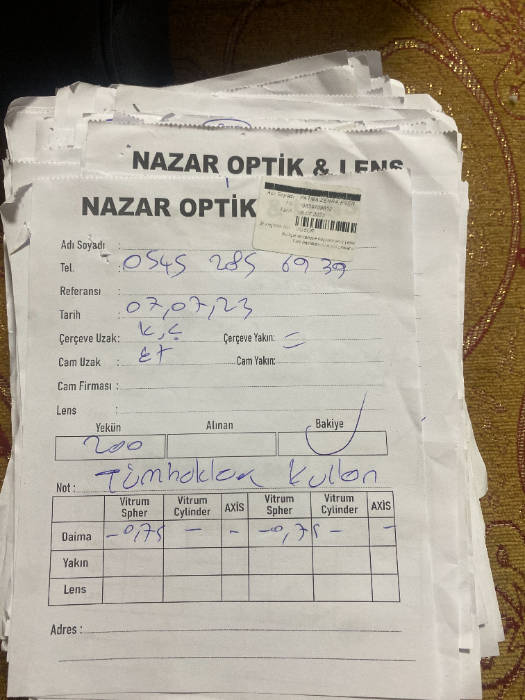 NAZAR OPTİK & LENS
NAZAR OPTİK
Adı Soyadı :
Tel. : 0545 285 69 39
Referansı :
Tarih : 07,07,23
Çerçeve Uzak: K,Ç Çerçeve Yakın: =
Cam Uzak : Cam Yakın:
Cam Firması :
Lens :
Yekün Alınan Bakiye
200
Not : Tümhakları kullan
Vitrum Spher Vitrum Cylinder AXİS Vitrum Spher Vitrum Cylinder AXİS
Daima -0,75 - - -0,75 - -
Yakın
Lens
Adres :